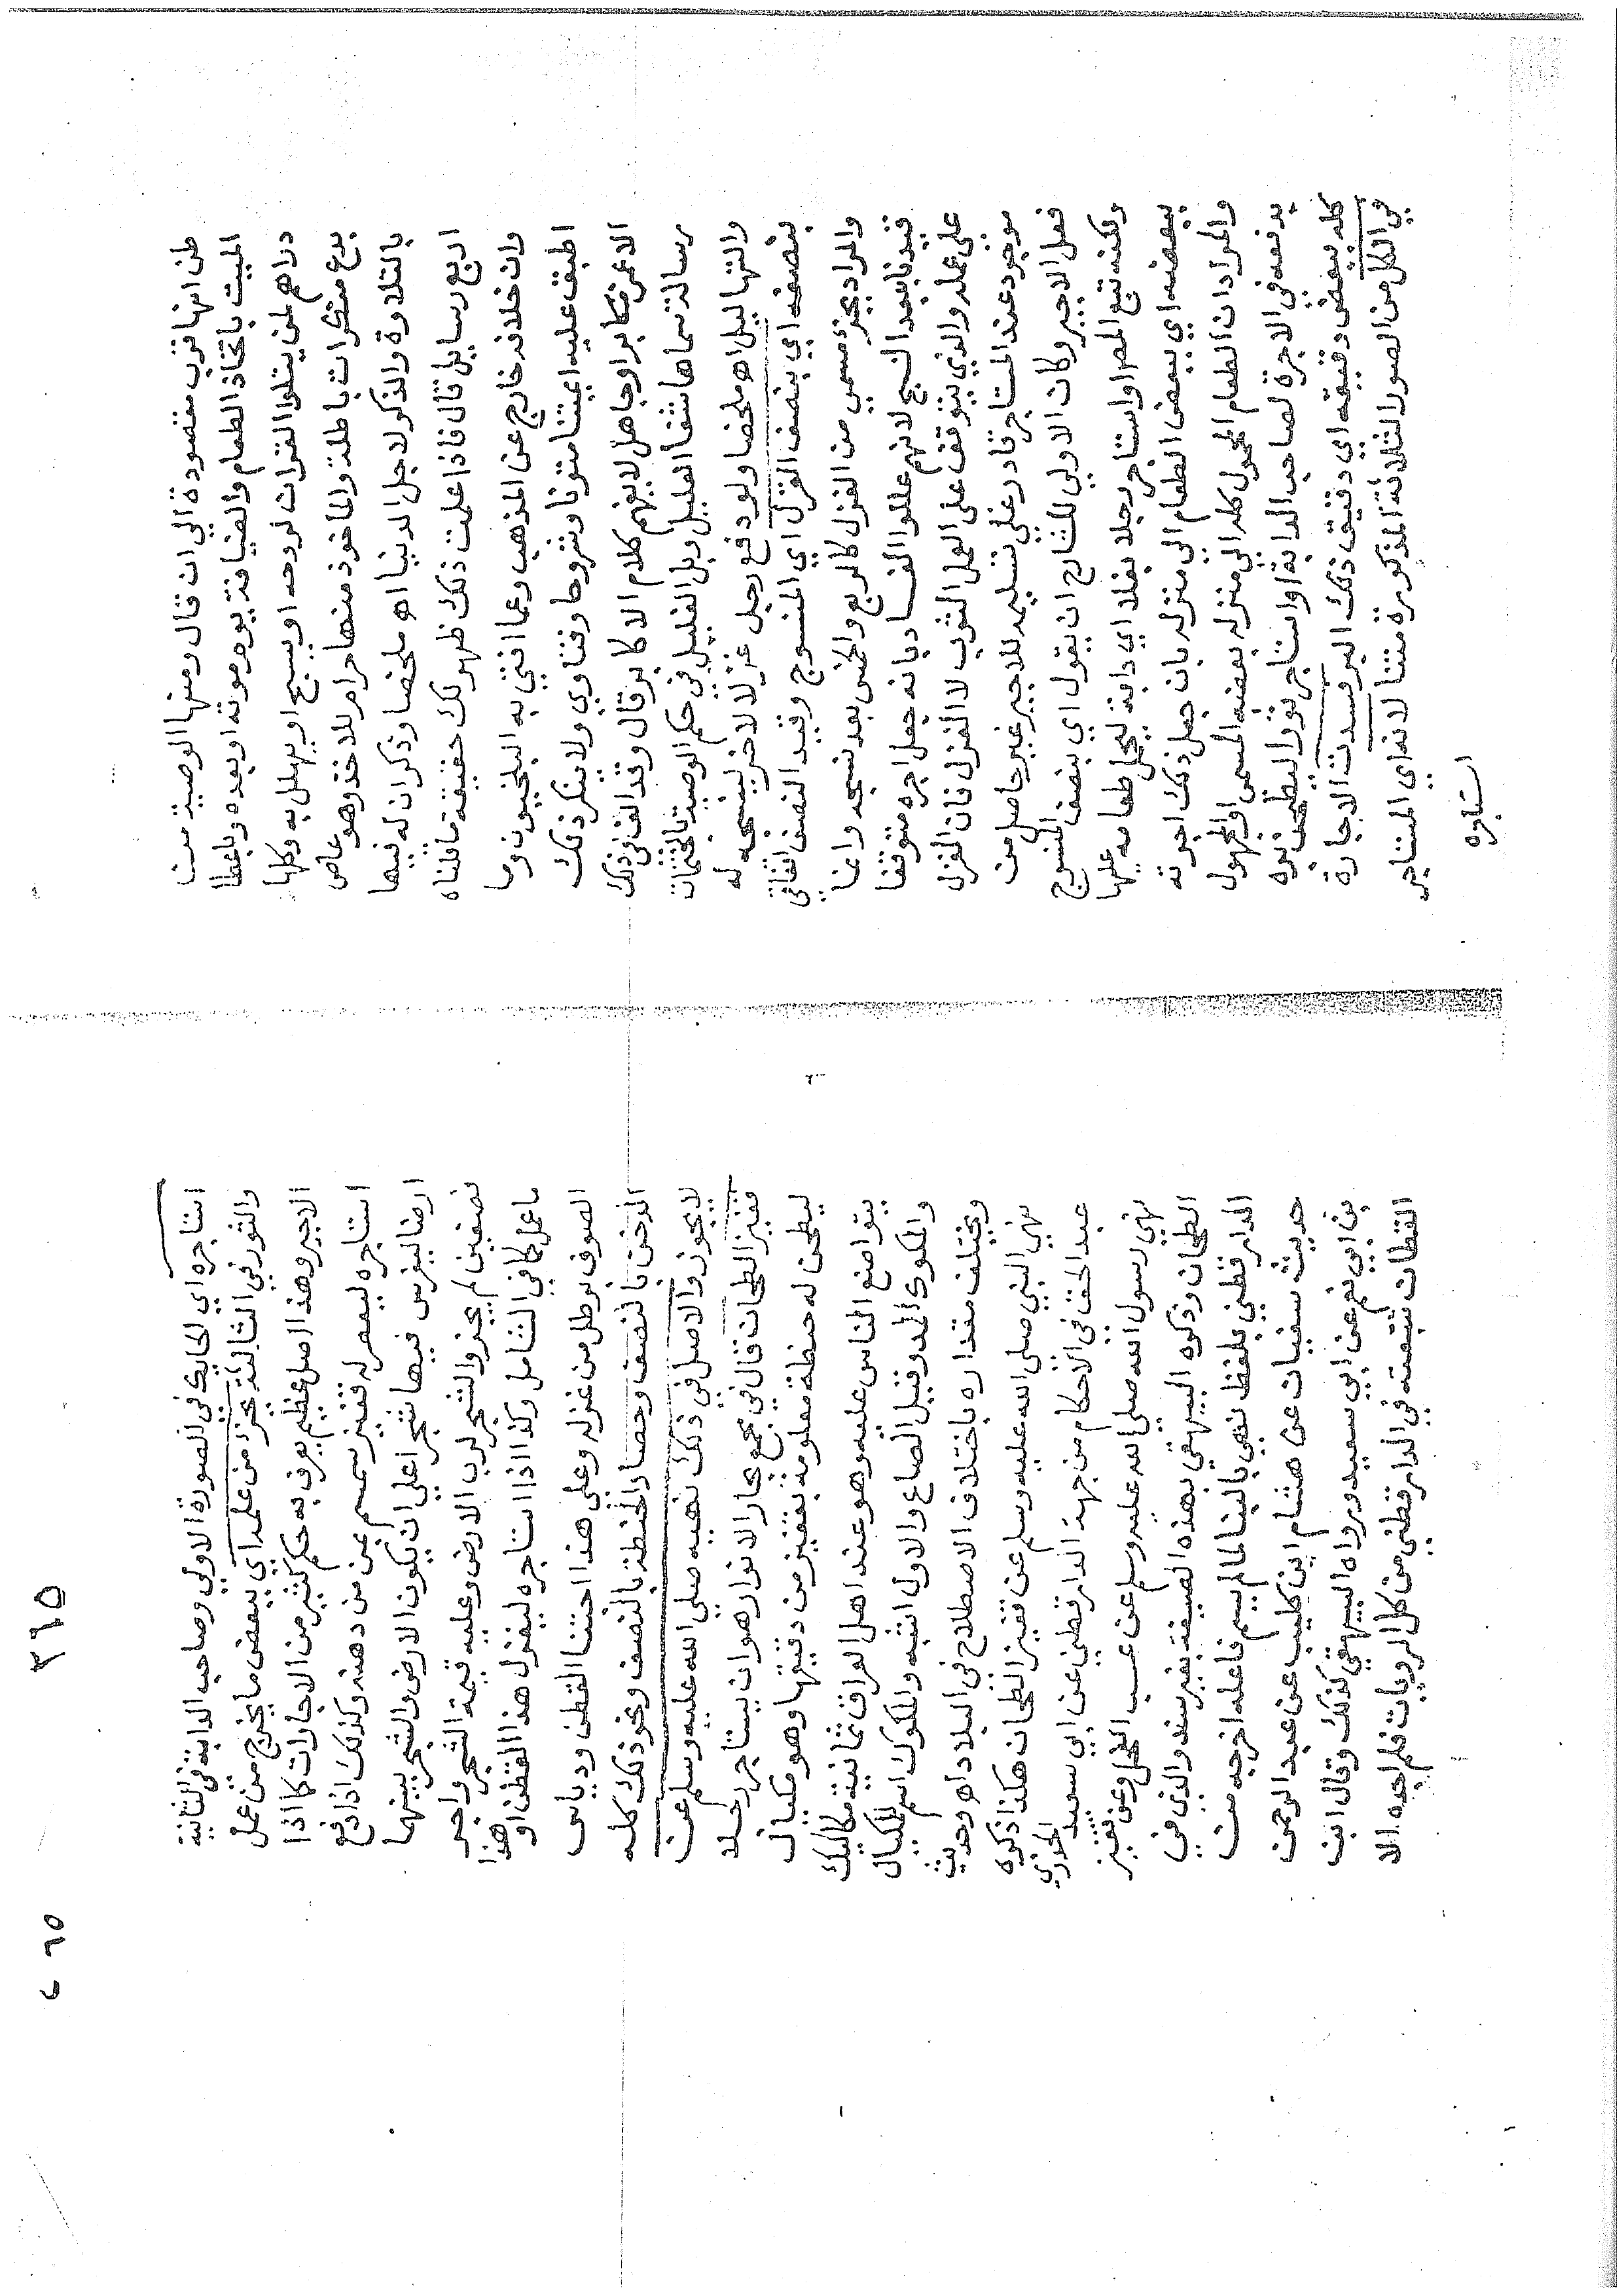 ظن انها قرب مقصودة الي ان قال ومنها الوصية من
الميت باتخاذ الطعام والضيافة يوم موته او بعده وباعطا
دراهم لمن يتلوا القران لروحه او يسبح او يهلل به وكلها
بدع منكرات باطلة والماخوذ منها حرام للاخذ وهو عاص
بالتلاوة والذكر لاجل الدنيا اه ملخصا وذكر ان له فيها
اربع رسايل قال فاذا علمت ذلك ظهر لك حقيقة ما قلناه
وان خلافه خارج عن المذهب وعما افتي به البلخيون وما
اطبق عليه ايمتنا متونا وشروحا وفتاوي ولا ينكر ذلك
الا غمر مكابر او جاهل لا يفهم كلام الاكابر قال وقد الف في ذلك
رسالة سماها شفا العليل وبل الغليل في حكم الوصية بالختمات
والتهاليل اه ملخصا ولو دفع رجل غزلا لاخر لينسجه له
بنصفه اي بنصف الغزل اي المنسوج وقيد النصف اتفاقي
والمراد بجزء مسمي من الغزل كالربع والخمس بعد نسجه وانما
قيدنا بعد النسج لانهم عللوا الفساد بانه جعل اجره متوقفا
علي عمله والذي يتوقف علي العمل الثوب لا الغزل فان الغزل
موجود عند المستاجر قادر علي تسليمه للاجير غير حاصل من
فعل الاجير وكان الاولي للشارح ان يقول اي بنصف المنسوج
ولكنه تبع المص او استاجر رجلا بغلا اي دابة ليحمل طعامه عليها
ببعضه اي ببعض الطعام الي منزله بان جعل ذلك اجرته
والمراد ان الطعام المحمول كله الي منزله بعضه المسمي او المجهول
يدفعه في الاجرة لصاحب الدابة او استاجر ثورا ليطحن بره
كله ببعض دقيقه اي دقيق ذلك البر فسدت الاجارة
في الكل من الصور الثلاثة المذكورة متنا لانه اي المستاجر
استاجره
٣٦٥
٢٦٥
استاجره اي الحايك في الصورة الاولي وصاحب الدابة في الثانية
والثور في الثالثة بجزء من عمله اي ببعض ما يخرج من عمل
الاجير وهذا اصل عظيم يعرف به حكم كثير من الاجارات كما اذا
استاجره ليعصر له قفيز سمسم بمن من دهنه وكذلك اذا دفع
ارضا ليغرس فيها شجرا علي ان يكون الارض والشجر بينهما
نصفين لم يجز والشجر لرب الارض وعليه قيمة الشجر واجر
ما عمل كما في الشامل وكذا اذا استاجره ليغزل هذا القطن او هذا
الصوف برطل من غزله وعلي هذا اجتنا القطن ودياس
الدخن بالنصف وحصاد الحنطة بالنصف ونحو ذلك كله
لا يجوز والاصل في ذلك نهيه صلي الله عليه وسلم عن
قفيز الطحان قال في مجمع بحار الانوار هو ان يستاجر رجلا
ليطحن له حنطة معلومة بقفيز من دقيقها وهو مكيال
يتواضع الناس عليه وهو عند اهل العراق ثمانية مكاكيك
والمكوك المد وقيل الصاع والاول اشبه والمكوك اسم للمكيال
ويختلف مقداره باختلاف الاصطلاح في البلاد اه وحديث
نهي النبي صلي الله عليه وسلم عن قفيز الطحان هكذا ذكره
عبد الحق في الاحكام من جهة الدارقطني عن ابي سعيد الخدري
نهي رسول الله صلي الله عليه وسلم عن عسب الفحل وعن قفيز
الطحان وذكره البيهقي بهذه الصيغة بغير سند والذي في
الدارقطني بلفظ نهي بالبنا لما لم يسم فاعله اخرجه من
حديث سفيان عن هشام ابن كليب عن عبد الرحمن
بن ابي نعم عن ابي سعيد ورواه البيهقي كذلك وقال ابن
القطان تتبعته في الدارقطني من كل الرويات فلم اجده الا